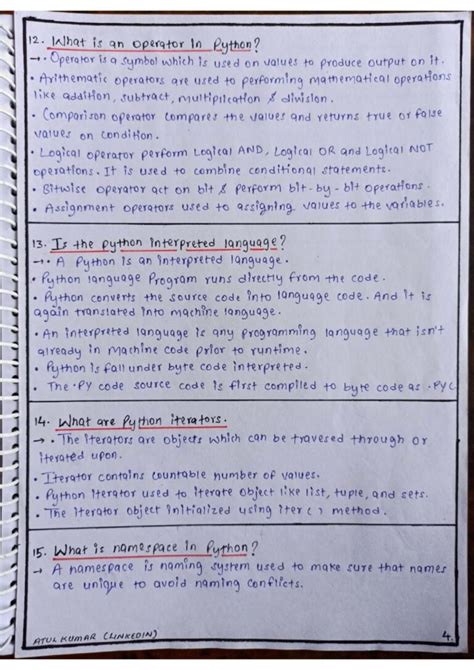 12. What is an operator in Python?
→ • Operator is a symbol which is used on values to produce output on it.
• Arithematic operators are used to performing mathematical operations
like addition, subtract, multiplication & division.
• Comparison operator compares the values and returns true or false
values on condition.
• Logical operator perform Logical AND, Logical OR and Logical NOT
operations. It is used to combine conditional statements.
• Bitwise operator act on bit & perform bit-by-bit operations.
• Assignment operators used to assigning values to the variables.
13. Is the python interpreted language?
→ • A Python is an interpreted language.
• Python language Program runs directly from the code.
• Python converts the source code into language code. And it is
again translated into machine language.
• An interpreted language is any programming language that isn't
already in machine code prior to runtime.
• Python is fall under byte code interpreted.
• The .PY code source code is first compiled to byte code as .PYC
14. What are Python iterators.
→ • The iterators are objects which can be travesed through or
iterated upon.
• Iterator contains countable number of values.
• Python iterator used to iterate object like list, tuple, and sets.
• The iterator object initialized using iter() method.
15. What is namespace in Python?
→ A namespace is naming system used to make sure that names
are unique to avoid naming conflicts.
ATUL KUMAR (LINKEDIN)
4.